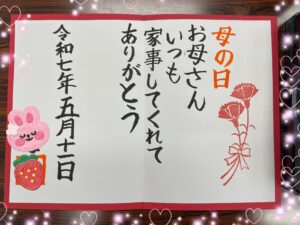 母の日
お母さん
いつも
家事してくれて
ありがとう
令和七年五月十一日